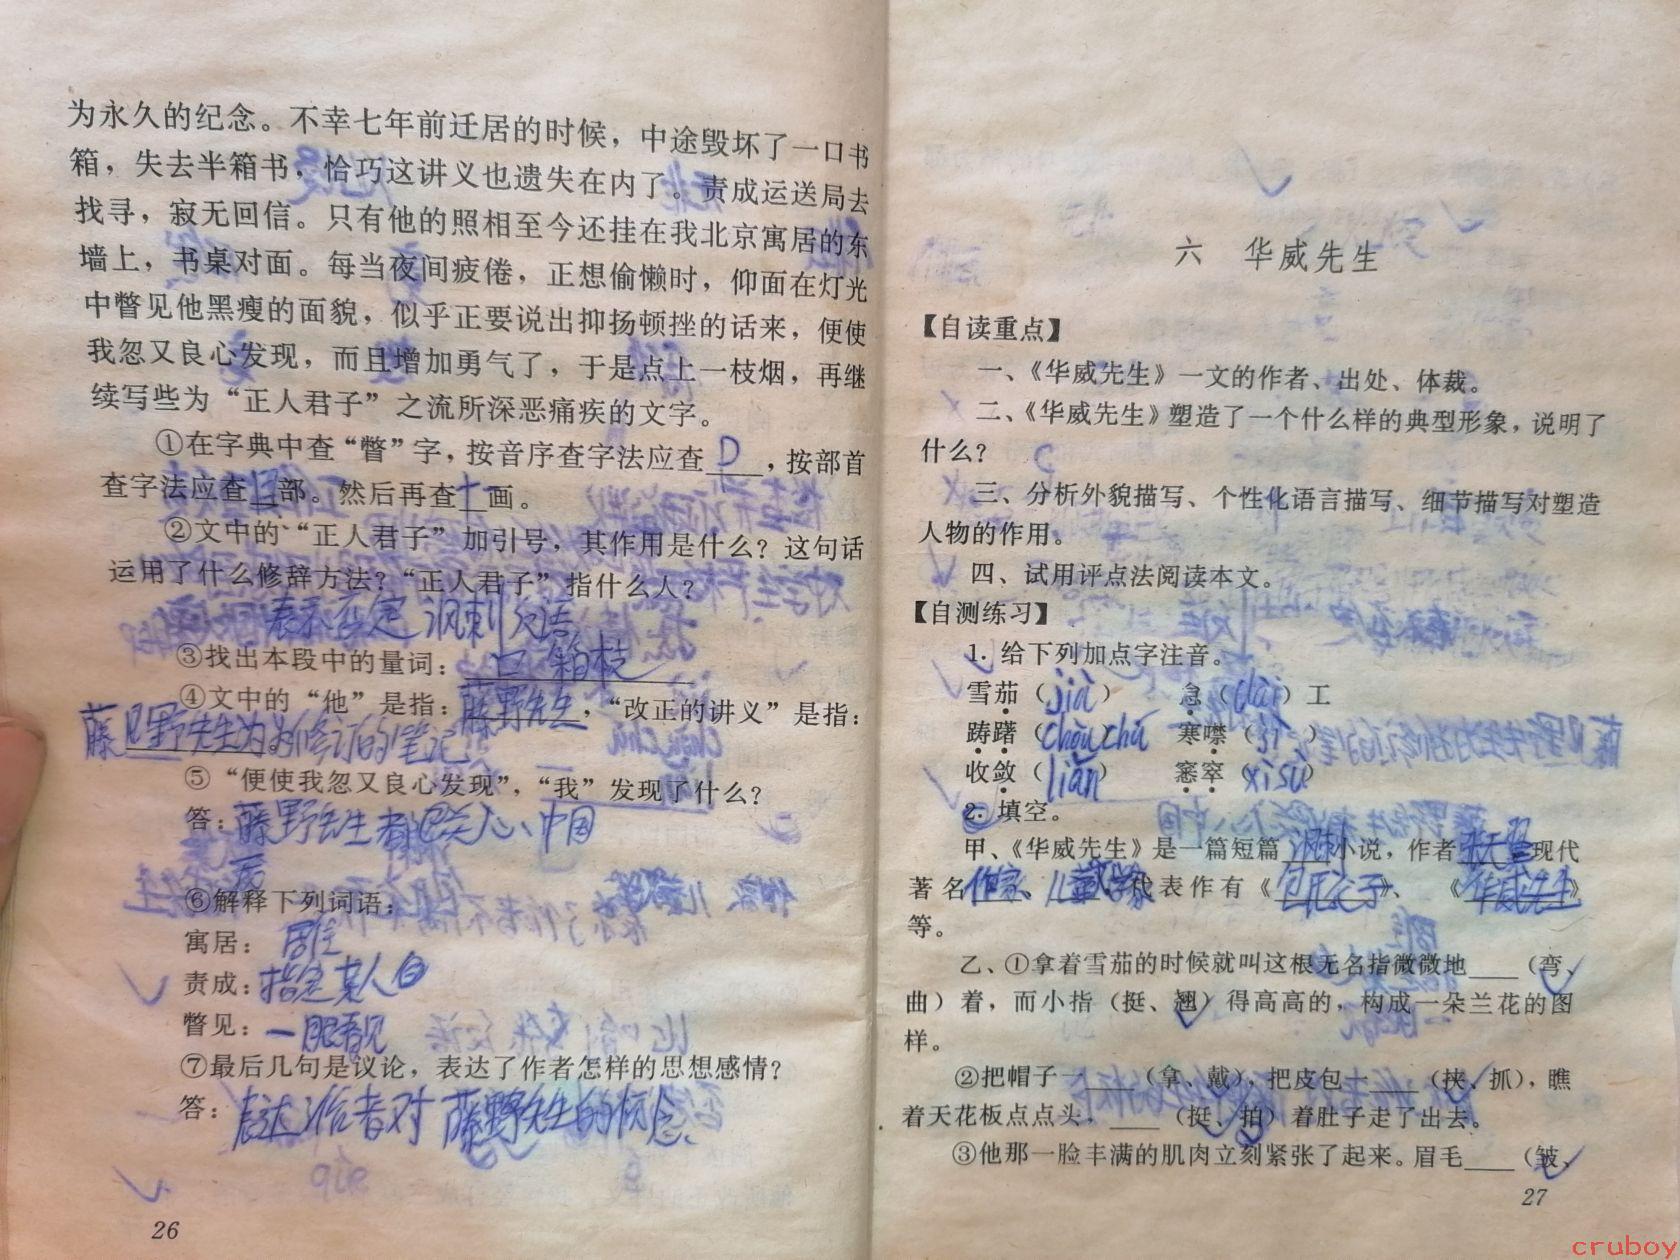 为永久的纪念。不幸七年前迁居的时候，中途毁坏了一口书
箱，失去半箱书，恰巧这讲义也遗失在内了。责成运送局去
找寻，寂无回信。只有他的照相至今还挂在我北京寓居的东
墙上，书桌对面。每当夜间疲倦，正想偷懒时，仰面在灯光
中瞥见他黑瘦的面貌，似乎正要说出抑扬顿挫的话来，便使
我忽又良心发现，而且增加勇气了，于是点上一枝烟，再继
续写些为“正人君子”之流所深恶痛疾的文字。
①在字典中查“瞥”字，按音序查字法应查 D ，按部首
查字法应查 目 部。然后再查 十 画。
②文中的“正人君子”加引号，其作用是什么？这句话
运用了什么修辞方法？“正人君子”指什么人？
表示否定 讽刺 反语
③找出本段中的量词： 口 箱 枝
④文中的“他”是指：藤野先生，“改正的讲义”是指：
藤野先生为我修订的笔记
⑤“便使我忽又良心发现”，“我”发现了什么？
答：藤野先生 关心 中国
⑥解释下列词语：
寓居：居住
责成：指定某人
瞥见：一眼看见
⑦最后几句是议论，表达了作者怎样的思想感情？
答：表达作者对藤野先生的怀念
26
六 华威先生
【自读重点】
一、《华威先生》一文的作者、出处、体裁。
二、《华威先生》塑造了一个什么样的典型形象，说明了
什么？
三、分析外貌描写、个性化语言描写、细节描写对塑造
人物的作用。
四、试用评点法阅读本文。
【自测练习】
1. 给下列加点字注音。
雪茄（jiā） 怠（dài）工
踌躇（chóu chú） 寒噤（jìn）
收敛（liǎn） 窸窣（xī sū）
2. 填空。
甲、《华威先生》是一篇短篇讽刺小说，作者张天翼现代
著名作家、儿童文学家代表作有《包氏父子》、《华威先生》
等。
乙、①拿着雪茄的时候就叫这根无名指微微地____（弯、
曲）着，而小指（挺、翘）得高高的，构成一朵兰花的图
样。
②把帽子一____（拿、戴），把皮包一____（挟、抓），瞧
着天花板点点头，____（挺、拍）着肚子走了出去。
③他那一脸丰满的肌肉立刻紧张了起来。眉毛____（皱、
27
cruboy